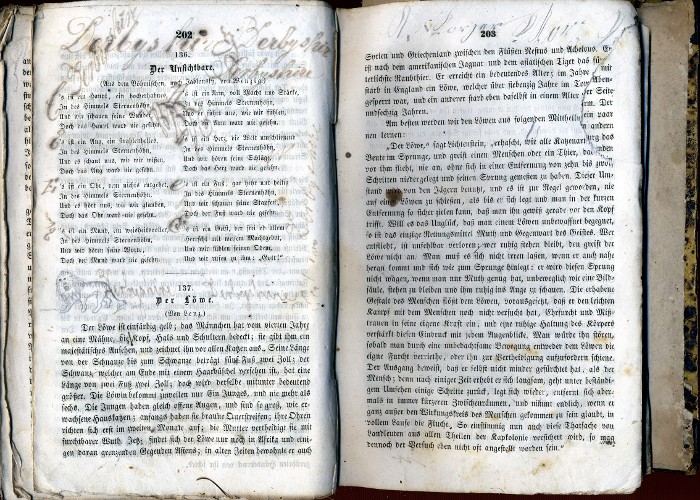 202
136.
Der Unsichtbare.
(Aus dem Böhmischen von Jablonsky, von Wenzig.)
's ist ein Haupt, ein hocherhabnes,
In des Himmels Sternenhöhn,
Und wir schauen seine Wunder,
Doch das Haupt ward nie gesehn.
's ist ein Aug, ein strahlenhelles,
In des Himmels Sternenhöhn,
Und es schaut uns, wie wir wissen,
Doch das Aug ward nie gesehn.
's ist ein Ohr, dem nichts entgehet,
In des Himmels Sternenhöhn,
Und es höret uns, wir glauben,
Doch das Ohr ward nie gesehn.
's ist ein Mund,
In des Himmels Sternenhöhn,
Und wir hören seine Worte,
Doch der Mund ward nie gesehn.
's ist ein Arm, voll Macht und Stärke,
In des Himmels Sternenhöhn,
Und er führt uns, wie wir fühlen,
Doch der Arm ward nie gesehn.
's ist ein Herz, die Welt umschließend
In des Himmels Sternenhöhn,
Und wir hören seine Schläge,
Doch das Herz ward nie gesehn.
's ist ein Fuß, gar hehr und heilig
In des Himmels Sternenhöhn,
Und wir schauen seine Stapfen,
Doch der Fuß ward nie gesehn.
's ist ein Geist, der fern ob allem
Herrscht mit seinem Machtgebot,
Und wir fühlen seinen Odem,
Und wir rufen zu ihm: „Gott!"
137.
Der Löwe.
(Von Lenz.)
Der Löwe ist einfärbig gelb; das Männchen hat vom vierten Jahre
an eine Mähne, die Kopf, Hals und Schultern bedeckt; sie gibt ihm ein
majestätisches Ansehen, und zeichnet ihn vor allen Katzen aus. Seine Länge
von der Schnauze bis zum Schwanze beträgt fünf Fuß zwei Zoll; der
Schwanz, welcher am Ende mit einem Haarbüschel versehen ist, hat eine
Länge von zwei Fuß zwei Zoll; doch wird derselbe mitunter bedeutend
größer. Die Löwin bekommt zuweilen nur Ein Junges, und nie mehr als
sechs. Die Jungen haben gleich offene Augen, und sind so groß, wie er-
wachsene Hauskatzen; anfangs haben sie braune Querstreifen; ihre Ohren
richten sich erst im zweiten Monate auf; die Mutter vertheidigt sie mit
furchtbarer Wuth. Jetzt findet sich der Löwe nur noch in Afrika und eini-
gen daran grenzenden Gegenden Asiens; in alten Zeiten bewohnte er auch
203
Syrien und Griechenland zwischen den Flüßen Nestus und Achelous. Er
ist nach dem amerikanischen Jaguar und dem asiatischen Tiger das für
terlichste Raubthier. Er erreicht ein bedeutendes Alter; im Jahre
starb in England ein Löwe, welcher über siebenzig Jahre im Tower
gesperrt war, und ein anderer starb eben daselbst in einem Alter
undsechzig Jahren.
Am besten werden wir den Löwen aus folgenden Mittheilungen
nen lernen:
„Der Löwe," sagt Lichtenstein, „erhascht, wie alle Katzenarten,
Beute im Sprunge, und greift einen Menschen oder ein Thier, das
vor ihm flieht, nie an, ohne sich in einer Entfernung von zehn bis zwölf
Schritten niedergelegt und seinen Sprung gemessen zu haben. Dieser Um
stand von den Jägern benutzt, und es ist zur Regel geworden, nie
auf einen Löwen zu schießen, als bis er sich legt und man in der kurzen
Entfernung so sicher zielen kann, daß man ihn gewiß gerade vor den Kopf
trifft. Will es das Unglück, daß man einem Löwen unbewaffnet begegnet,
so ist das einzige Rettungsmittel Muth und Gegenwart des Geistes. Wer
entflieht, ist unfehlbar verloren; wer ruhig stehen bleibt, den greift der
Löwe nicht an. Man muß es sich nicht irren lassen, wenn er auch nahe
heran kommt und sich wie zum Sprunge hinlegt: er wird diesen Sprung
nicht wagen, wenn man nur Muth genug hat, unbeweglich wie eine Bild-
säule, stehen zu bleiben und ihm ruhig ins Auge zu schauen. Die erhabene
Gestalt des Menschen flößt dem Löwen, vorausgesetzt, daß er den leichten
Kampf mit dem Menschen noch nicht versucht hat, Ehrfurcht und Miß-
trauen in seine eigene Kraft ein, und eine ruhige Haltung des Körpers
verstärkt diesen Eindruck mit jedem Augenblicke. Man würde ihn stören,
sobald man durch eine unbedachtsame Bewegung entweder dem Löwen die
eigne Furcht verriethe, oder ihn zur Vertheidigung aufzufordern schiene.
Der Ausgang beweist, daß er selbst nicht minder gefürchtet hat, als der
Mensch; denn nach einiger Zeit erhebt er sich langsam, geht unter beständi-
gem Umsehen einige Schritte zurück, legt sich wieder, entfernt sich aber-
mals in immer kürzeren Zwischenräumen, und nimmt endlich, wenn er
ganz außer den Wirkungskreis des Menschen gekommen zu sein glaubt, in
vollem Laufe die Flucht. So einstimmig nun auch diese Thatsache von
Landleuten aus allen Theilen der Kapkolonie versichert wird, so mag
dennoch der Versuch eben nicht oft angestellt worden sein."